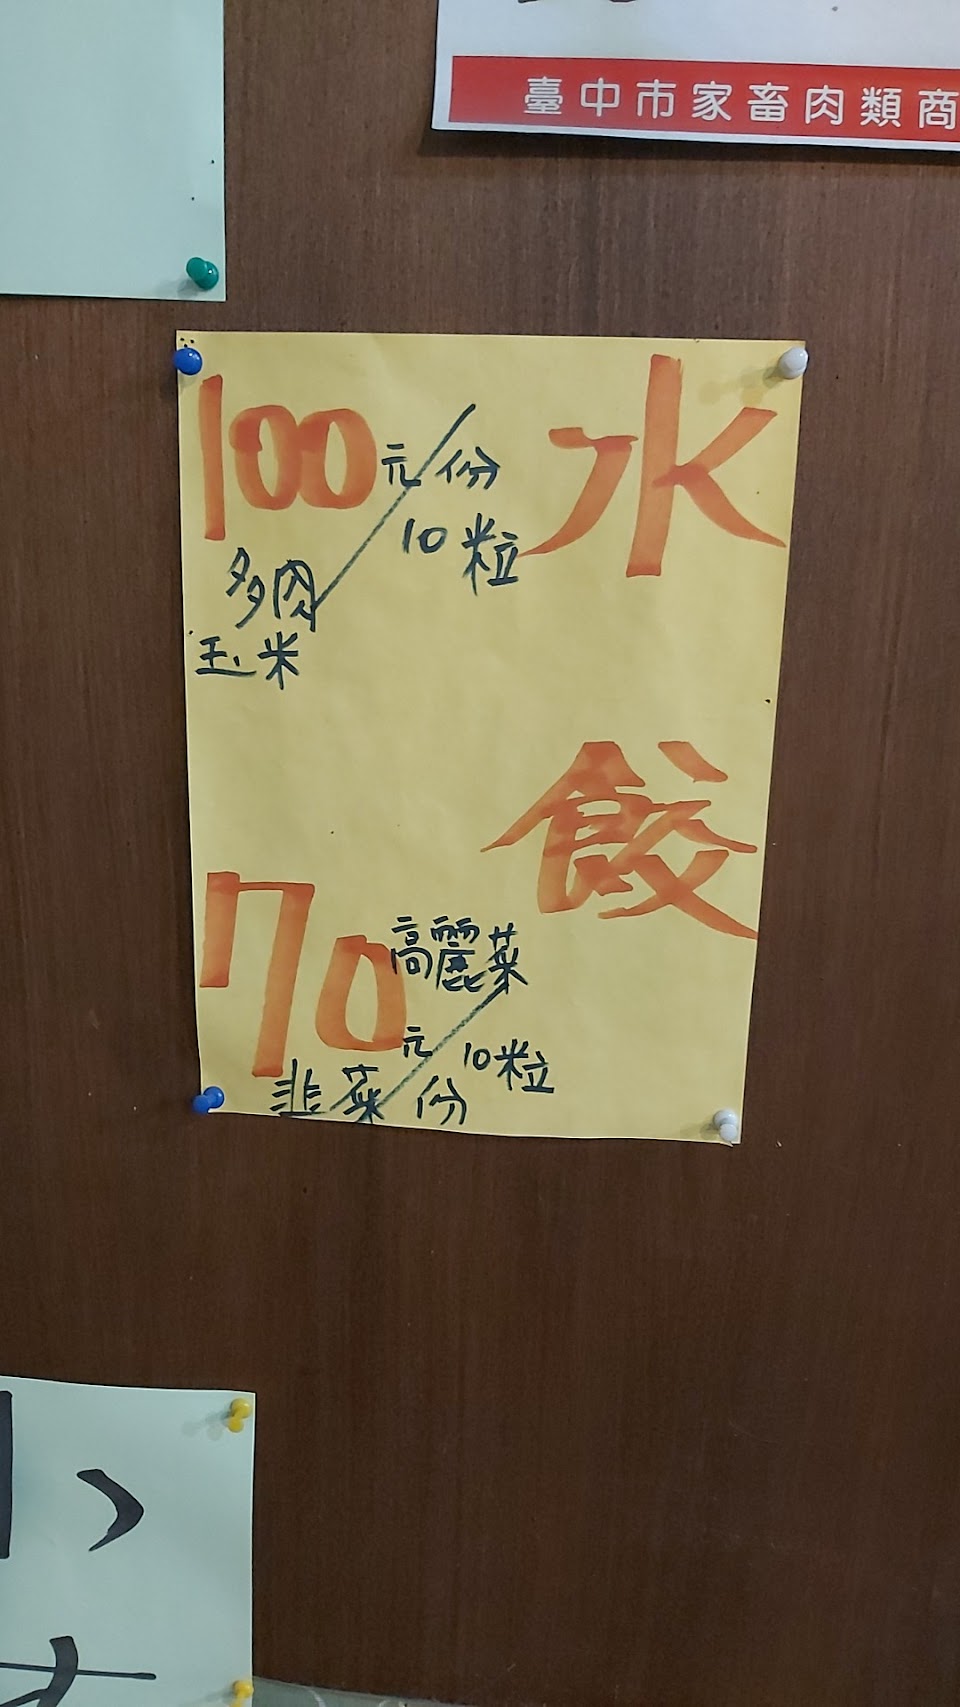 臺中市家畜肉類商
水餃
100元/份
10粒
多肉
玉米
高麗菜
70元/份
10粒
韭菜